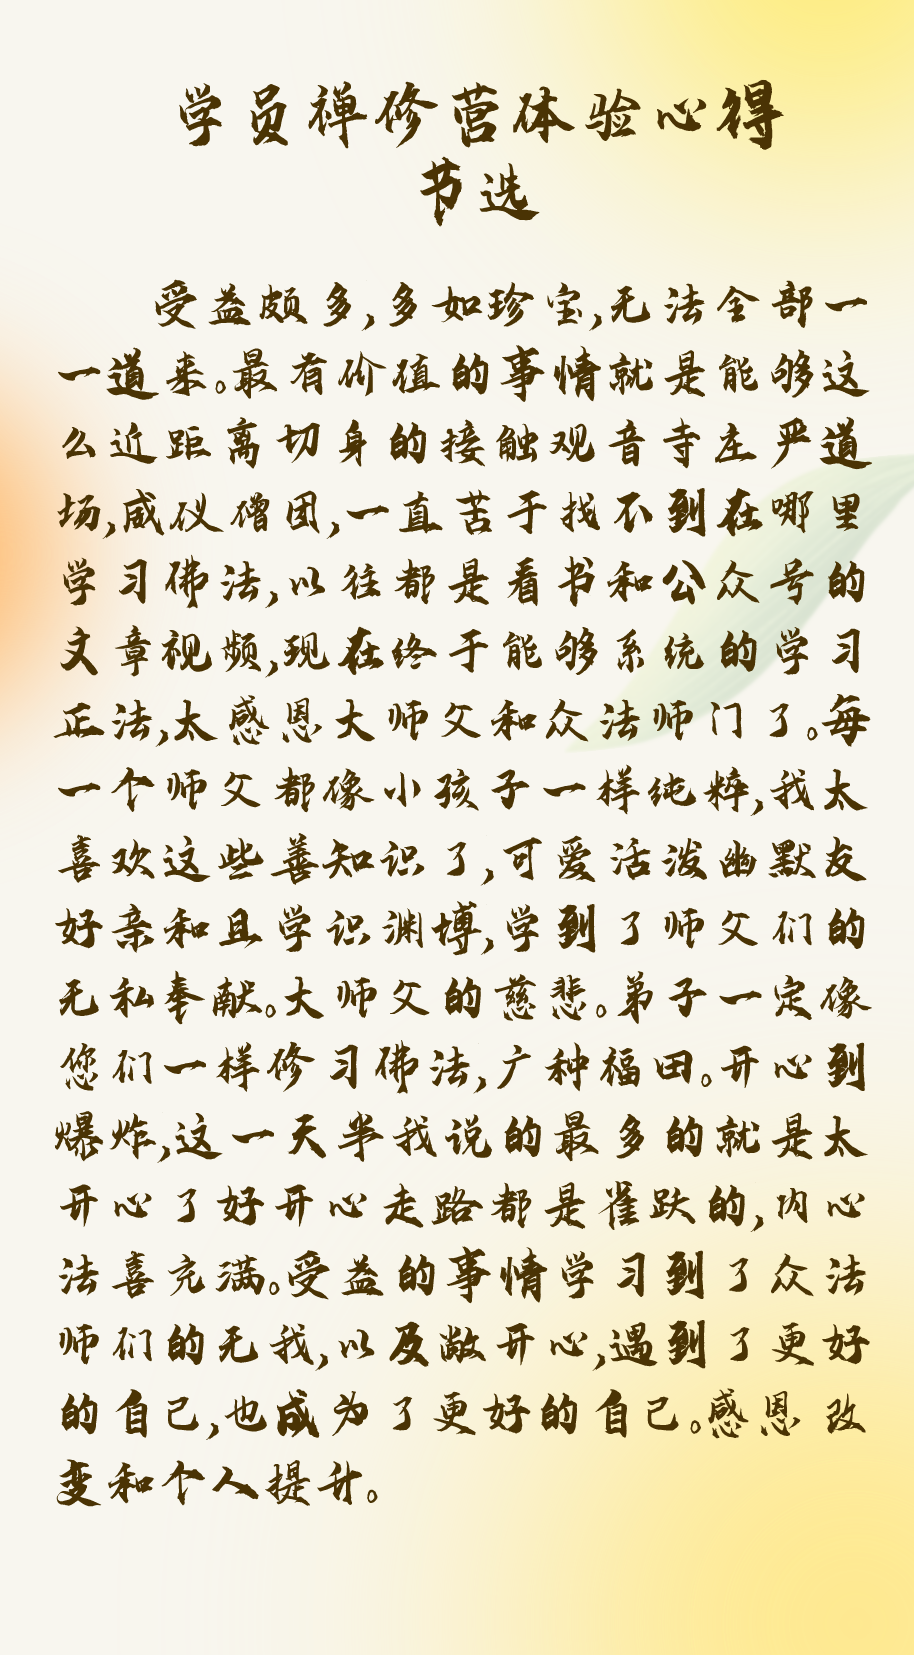 学员禅修营体验心得
节选
受益颇多,多如珍宝,无法全部一
一道来。最有价值的事情就是能够这
么近距离切身的接触观音寺庄严道
场,威仪僧团,一直苦于找不到在哪里
学习佛法,以往都是看书和公众号的
文章视频,现在终于能够系统的学习
正法,太感恩大师父和众法师门了。每
一个师父都像小孩子一样纯粹,我太
喜欢这些善知识了,可爱活泼幽默友
好亲和且学识渊博,学到了师父们的
无私奉献。大师父的慈悲。弟子一定像
您们一样修习佛法,广种福田。开心到
爆炸,这一天半我说的最多的就是太
开心了好开心走路都是雀跃的,内心
法喜充满。受益的事情学习到了众法
师们的无我,以及敞开心,遇到了更好
的自己,也成为了更好的自己。感恩 改
变和个人提升。